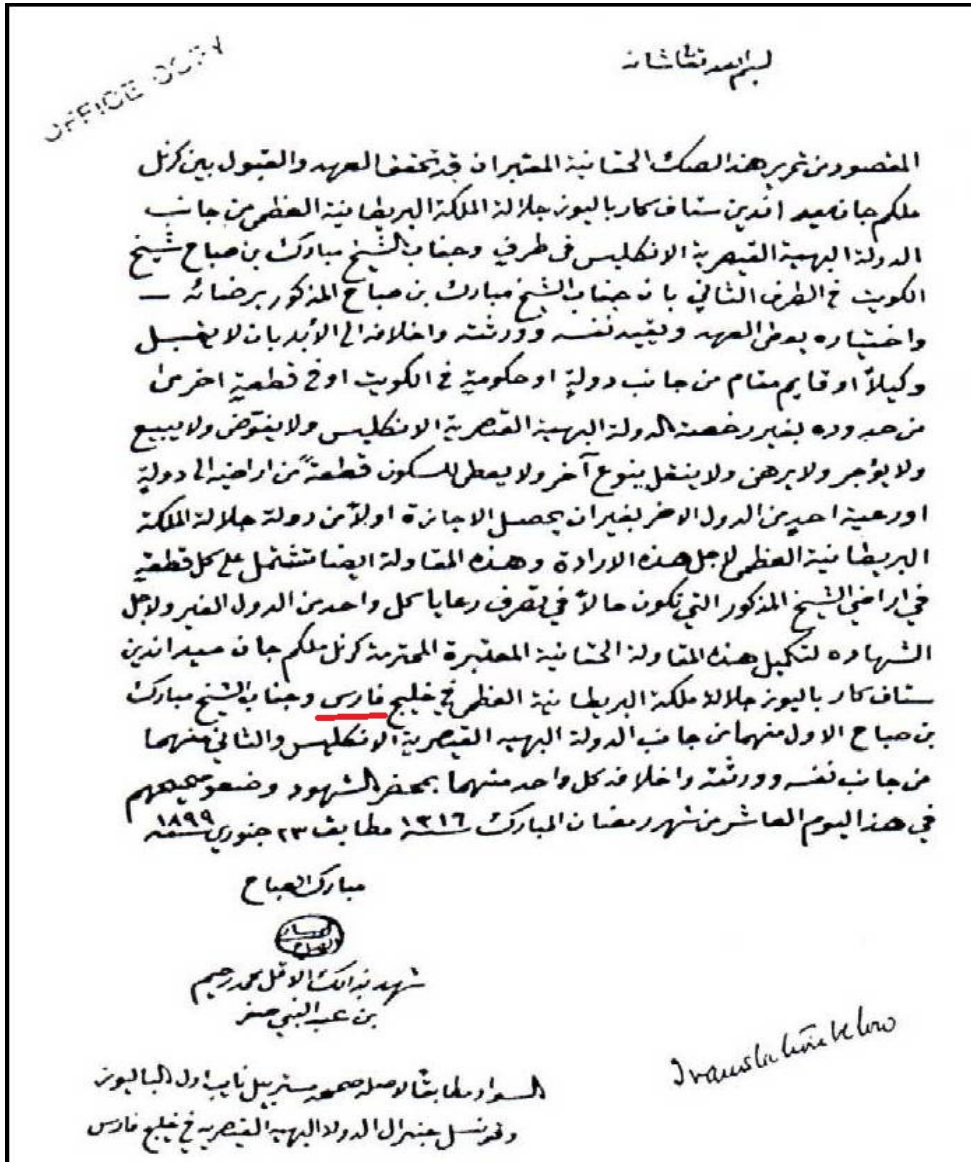 OFFICE COPY
بسم الله تعالى شانه
المقصود من تحرير هذه الصك الحقانية المعتبر ان قد تحقق العهد والقبول بين كرنل
ملكم جان ميد اندين ستاف كار باليوز جلالة الملكة البريطانية العظمى من جانب
الدولة البهية القيصرية الانكليس فى طرف وجناب الشيخ مبارك بن صباح شيخ
الكويت في الطرف الثاني بان جناب الشيخ مبارك بن صباح المذكور برضائه –
واختياره يعطى العهد ويقيد نفسه وورثته واخلافه الى الأبد بان لا يقبل
وكيلاً او قايم مقام من جانب دولةٍ او حكومةٍ في الكويت او في قطعةٍ اخرى
من حدوده بغير رخصة الدولة البهية القيصرية الانكليس ولا يفوّض ولا يبيع
ولا يؤجر ولا يرهن ولا ينقل بنوع آخر ولا يعطى للسكون قطعةً من اراضيه الى دولةٍ
او رعية احدٍ من الدول الاخر بغير ان يحصل الاجازة اولاً من دولة جلالة الملكة
البريطانية العظمى لاجل هذه الارادة وهذه المقاولة ايضا تشتمل على كل قطعةٍ
في اراضي الشيخ المذكور التي تكون حالاً في تصرف رعايا كل واحد من الدول الغير ولاجل
الشهاده لتكميل هذه المقاولة الحقانية المعتبرة المحترمة كرنل ملكم جان ميد اندين
ستاف كار باليوز جلالة ملكة البريطانية العظمى في خليج فارس وجناب الشيخ مبارك
بن صباح الاول منهما من جانب الدولة البهيه القيصرية الانكليس والثاني منهما
من جانب نفسه وورثته واخلافه كل واحد منهما بمحضر الشهود وضعو صحيحهم
في هذا اليوم العاشر من شهر رمضان المبارك سنة ١٣١٦ مطابق ٢٣ جنوري سنة ١٨٩٩
مبارك الصباح
شهد بذالك الاقل محمد رحيم
بن عبد النبي صفر
Translation below
السواد مطابقا لاصله صححه مستر نايب اول الباليوز
وقونسل جنرال الدولة البهيه القيصريه في خليج فارس